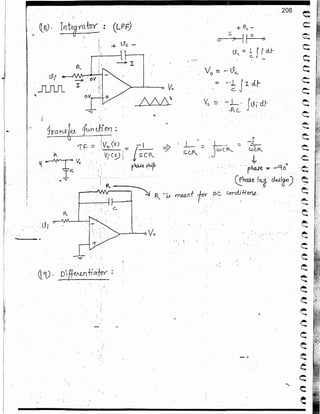 208
(18). Integrator : (LPF)
+ Vc -
+ Vc -
I
c
R
I
Vi
I
0V
0V
Vo
Vc = 1/c ∫ I dt
Vo = - Vc
= -1/c ∫ I dt
Vo = -1/RC ∫ Vi dt
Transfer function :
TF = Vo(s)/Vi(s) = -1/SCR ⇒ 1/SCR = 1/jωCR = -j/ωCR
phase shift
phase = -90°
(Phase lag design)
R
Vi
Vo
c
R
R is meant for DC conditions.
c
R
Vi
Vo
(19). Differentiator :